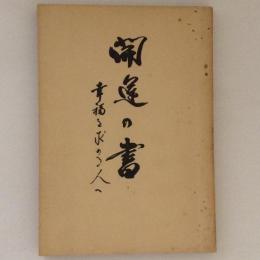 開運の書
幸福を求める人へ